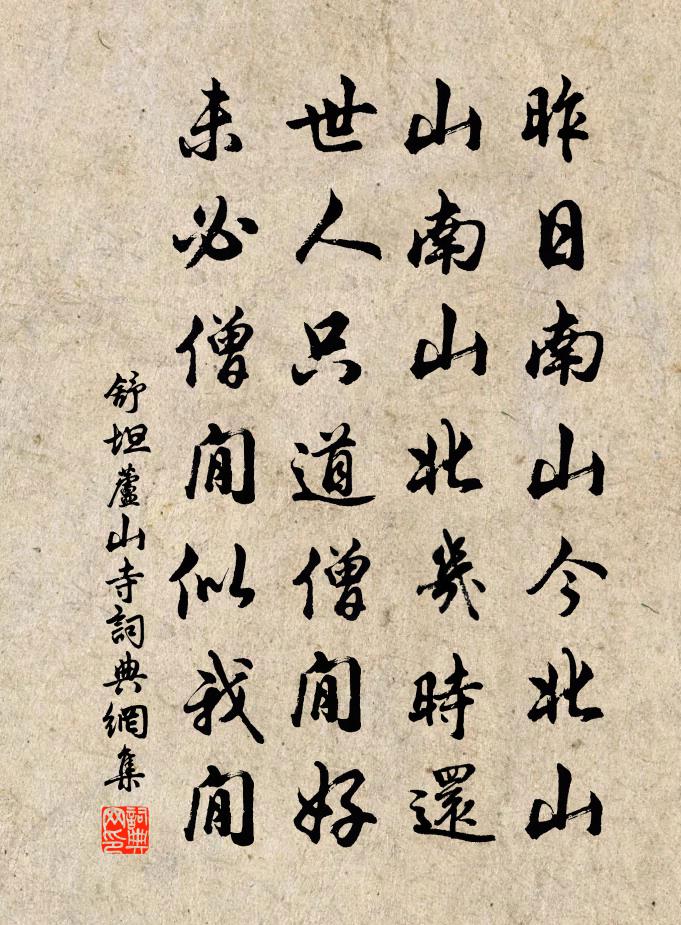 昨日南山今北山
山南山北幾時還
世人只道僧閒好
未必僧閒似我閒
舒坦蘆山寺詞典網集
詞典網印